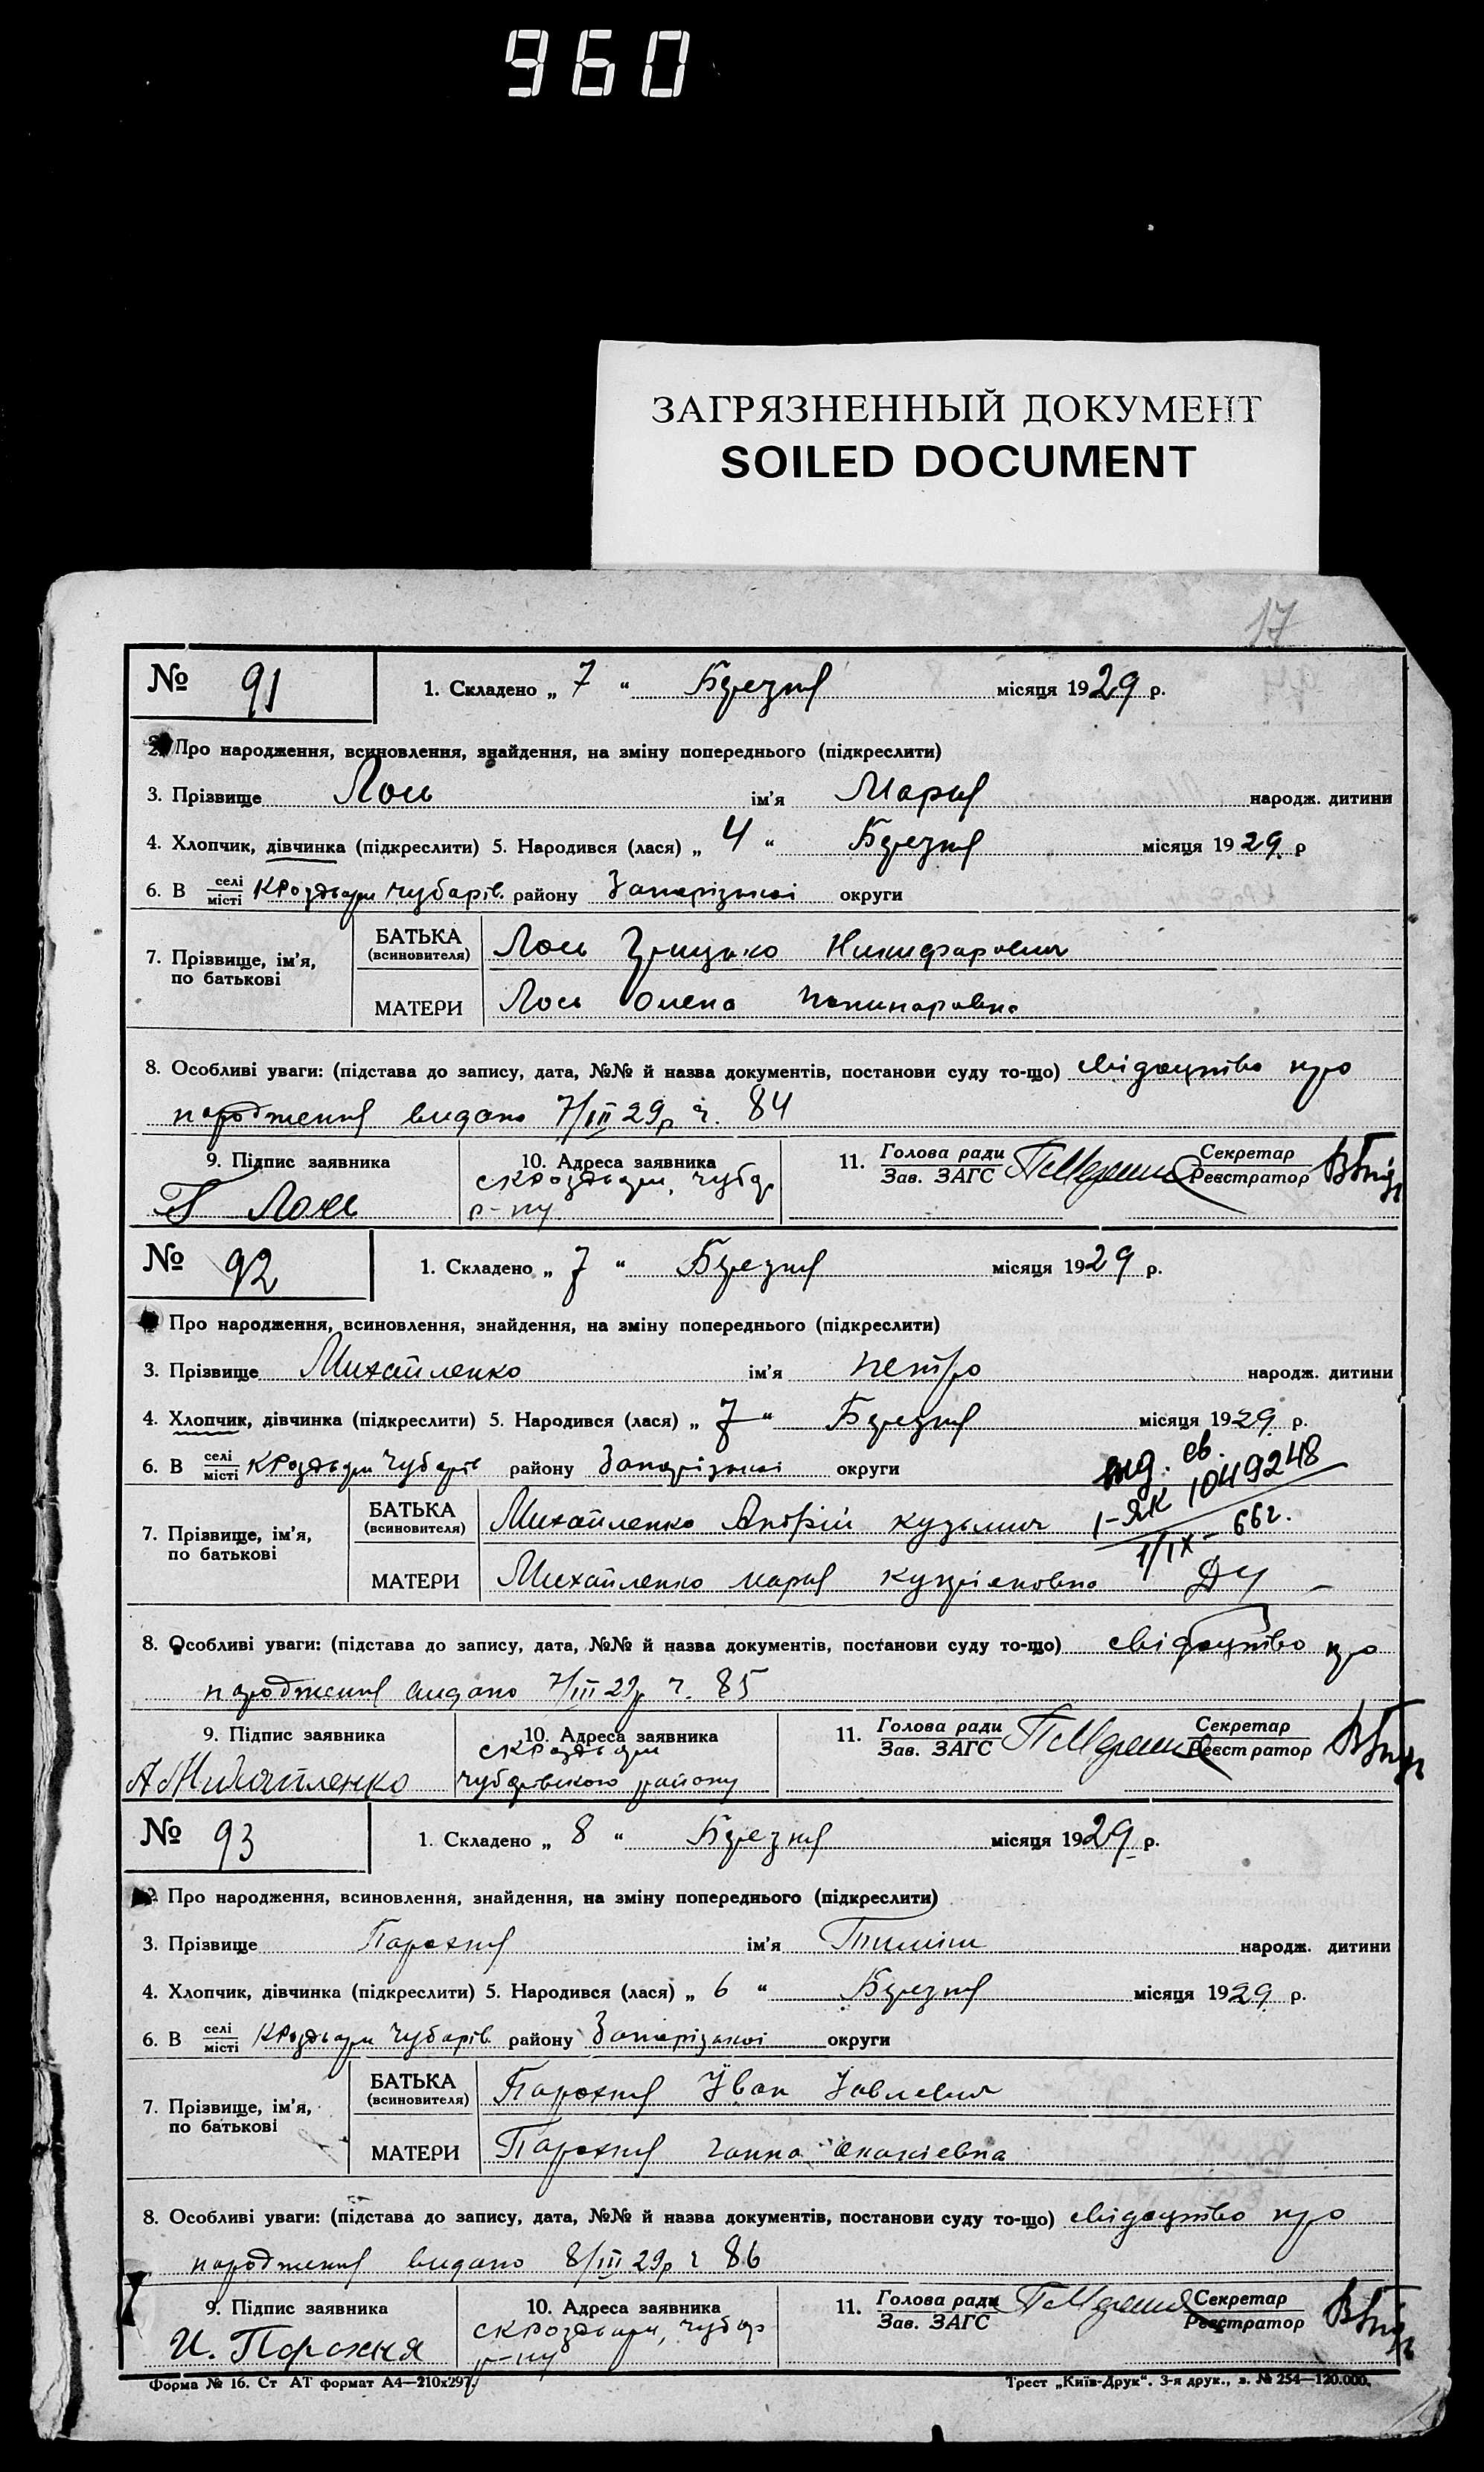 960
ЗАГРЯЗНЕННЫЙ ДОКУМЕНТ
SOILED DOCUMENT
17
№ 91 1. Складено „ 7 “ Березня місяця 1929 р.
2. Про народження, всиновлення, знайдення, на зміну попереднього (підкреслити)
3. Прізвище Лось ім'я Марія народж. дитини
4. Хлопчик, дівчинка (підкреслити) 5. Народився (лася) „ 4 “ Березня місяця 1929 р
6. В селі місті Чубарів. району Запорізької округи
7. Прізвище, ім'я, по батькові БАТЬКА (всиновителя) Лось Грицько Никифорович
МАТЕРИ Лось Олена
8. Особливі уваги: (підстава до запису, дата, №№ й назва документів, постанови суду то-що) свідоцтво про
народження видано 7/III 29р ч. 84
9. Підпис заявника 10. Адреса заявника 11. Голова ради Зав. ЗАГС Секретар Реєстратор
Г Лось р-ну
№ 92 1. Складено „ 7 “ Березня місяця 1929 р.
Про народження, всиновлення, знайдення, на зміну попереднього (підкреслити)
3. Прізвище Михайленко ім'я Петро народж. дитини
4. Хлопчик, дівчинка (підкреслити) 5. Народився (лася) „ 7 “ Березня місяця 1929 р.
6. В селі місті Чубарів району Запорізької округи
выд. св.
1-ЯК 1049248
1/IX - 66г.
7. Прізвище, ім'я, по батькові БАТЬКА (всиновителя) Михайленко Андрій Кузьмич
МАТЕРИ Михайленко Марія
8. Особливі уваги: (підстава до запису, дата, №№ й назва документів, постанови суду то-що) свідоцтво про
народження видано 7/III 29р ч. 85
9. Підпис заявника 10. Адреса заявника 11. Голова ради Зав. ЗАГС Секретар Реєстратор
А Михайленко Чубарівського району
№ 93 1. Складено „ 8 “ Березня місяця 1929 р.
2. Про народження, всиновлення, знайдення, на зміну попереднього (підкреслити)
3. Прізвище Порожня ім'я народж. дитини
4. Хлопчик, дівчинка (підкреслити) 5. Народився (лася) „ 6 “ Березня місяця 1929 р.
6. В селі місті Чубарів. району Запорізької округи
7. Прізвище, ім'я, по батькові БАТЬКА (всиновителя) Порожня Іван
МАТЕРИ Порожня Ганна
8. Особливі уваги: (підстава до запису, дата, №№ й назва документів, постанови суду то-що) свідоцтво про
народження видано 8/III 29р ч 86
9. Підпис заявника 10. Адреса заявника 11. Голова ради Зав. ЗАГС Секретар Реєстратор
И. Порожня р-ну
Форма № 16. Ст АТ формат А4—210х297. Трест „Київ-Друк“. 3-я друк., з. № 254—120.000.